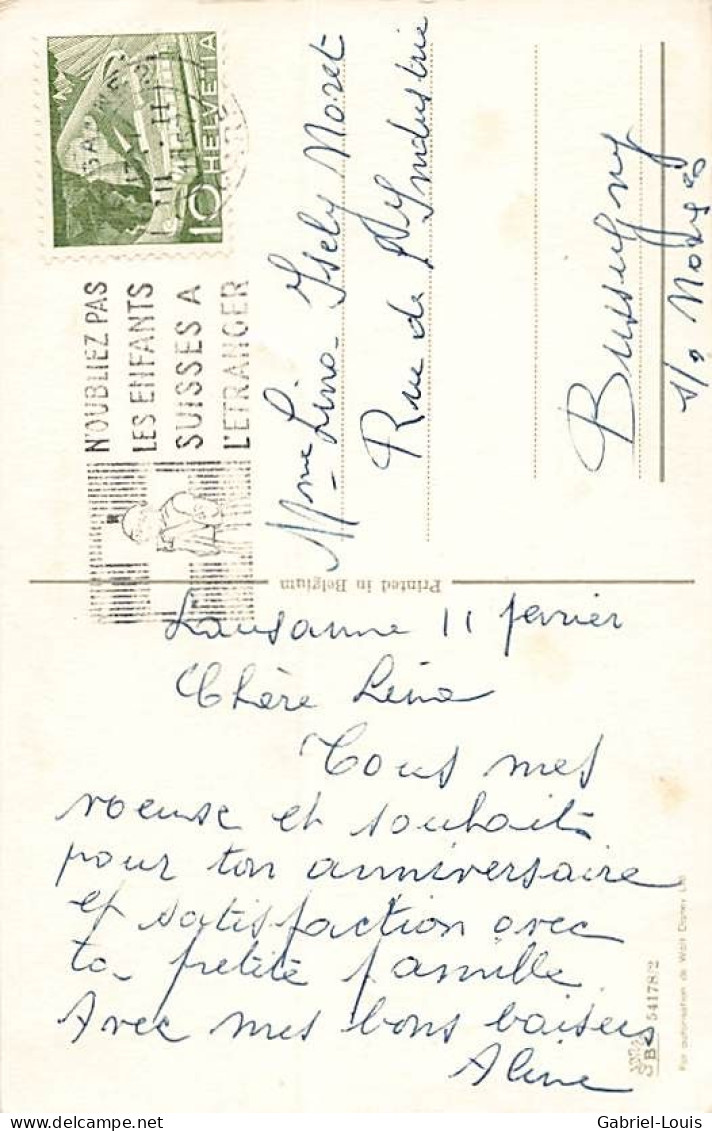 10 HELVETIA
N'OUBLIEZ PAS
LES ENFANTS
SUISSES A
L'ETRANGER
Mme Lina Isely Noret
Rue de l'Industrie
Bussigny
s/s Morges
Printed in Belgium
Lausanne 11 fevrier
Chère Lina
Tous mes
voeuse et souhaits
pour ton anniversaire
et satisfaction avec
ta petite famille.
Avec mes bons baisers
Aline
54178/2
Par autorisation de Walt Disney
Gabriel-Louis